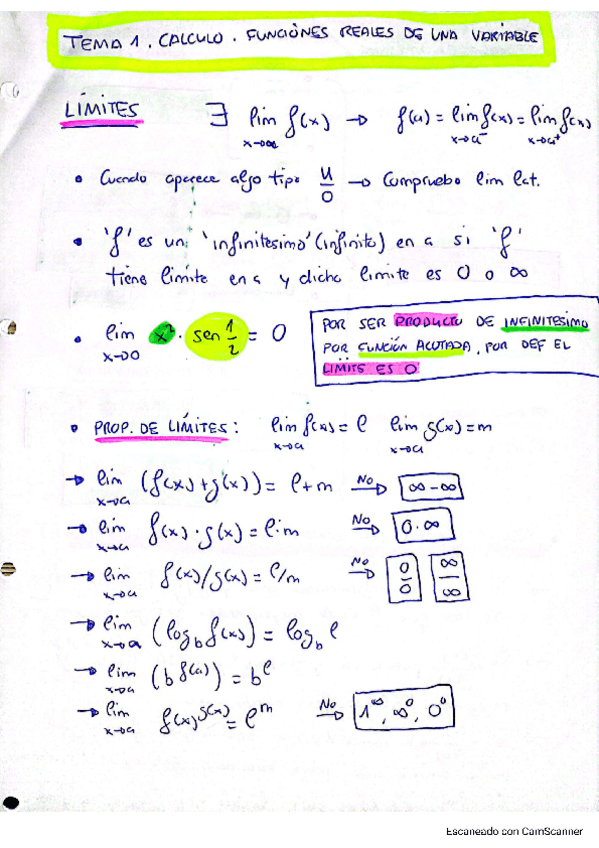 TEMA 1. CALCULO. FUNCIONES REALES DE UNA VARIABLE
LÍMITES ∃ lim f(x) → f(a) = lim f(x) = lim f(x)
x→a x→a⁻ x→a⁺
• Cuando aparece algo tipo u/0 → Compruebo lim lat.
• 'f' es un 'infinitesimo' (infinito) en a si 'f'
tiene limite en a y dicho limite es 0 o ∞
• lim x² · sen 1/2 = 0
x→0
POR SER PRODUCTO DE INFINITESIMO
POR FUNCIÓN ACOTADA, POR DEF EL
LÍMITE ES 0
• PROP. DE LÍMITES: lim f(x) = l lim g(x) = m
x→a x→a
→ lim (f(x) + g(x)) = l + m No → ∞ - ∞
x→a
→ lim f(x) · g(x) = l · m No → 0 · ∞
x→a
→ lim f(x)/g(x) = l/m No → 0/0 ∞/∞
x→a
→ lim (log_b f(x)) = log_b l
x→a
→ lim (b^f(a)) = b^l
x→a
→ lim f(x)^g(x) = l^m No → 1^∞, ∞^0, 0^0
x→a
Escaneado con CamScanner